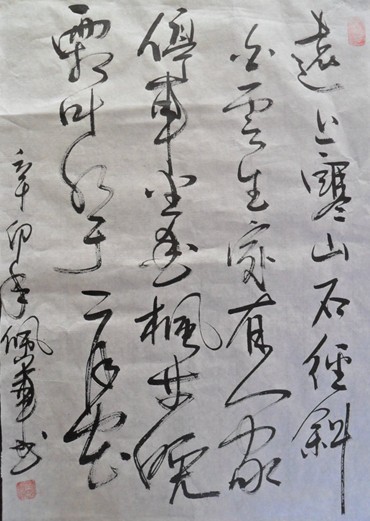 遠上寒山石徑斜
白雲生處有人家
停車坐愛楓林晚
霜叶红于二月花
辛卯年佩華书